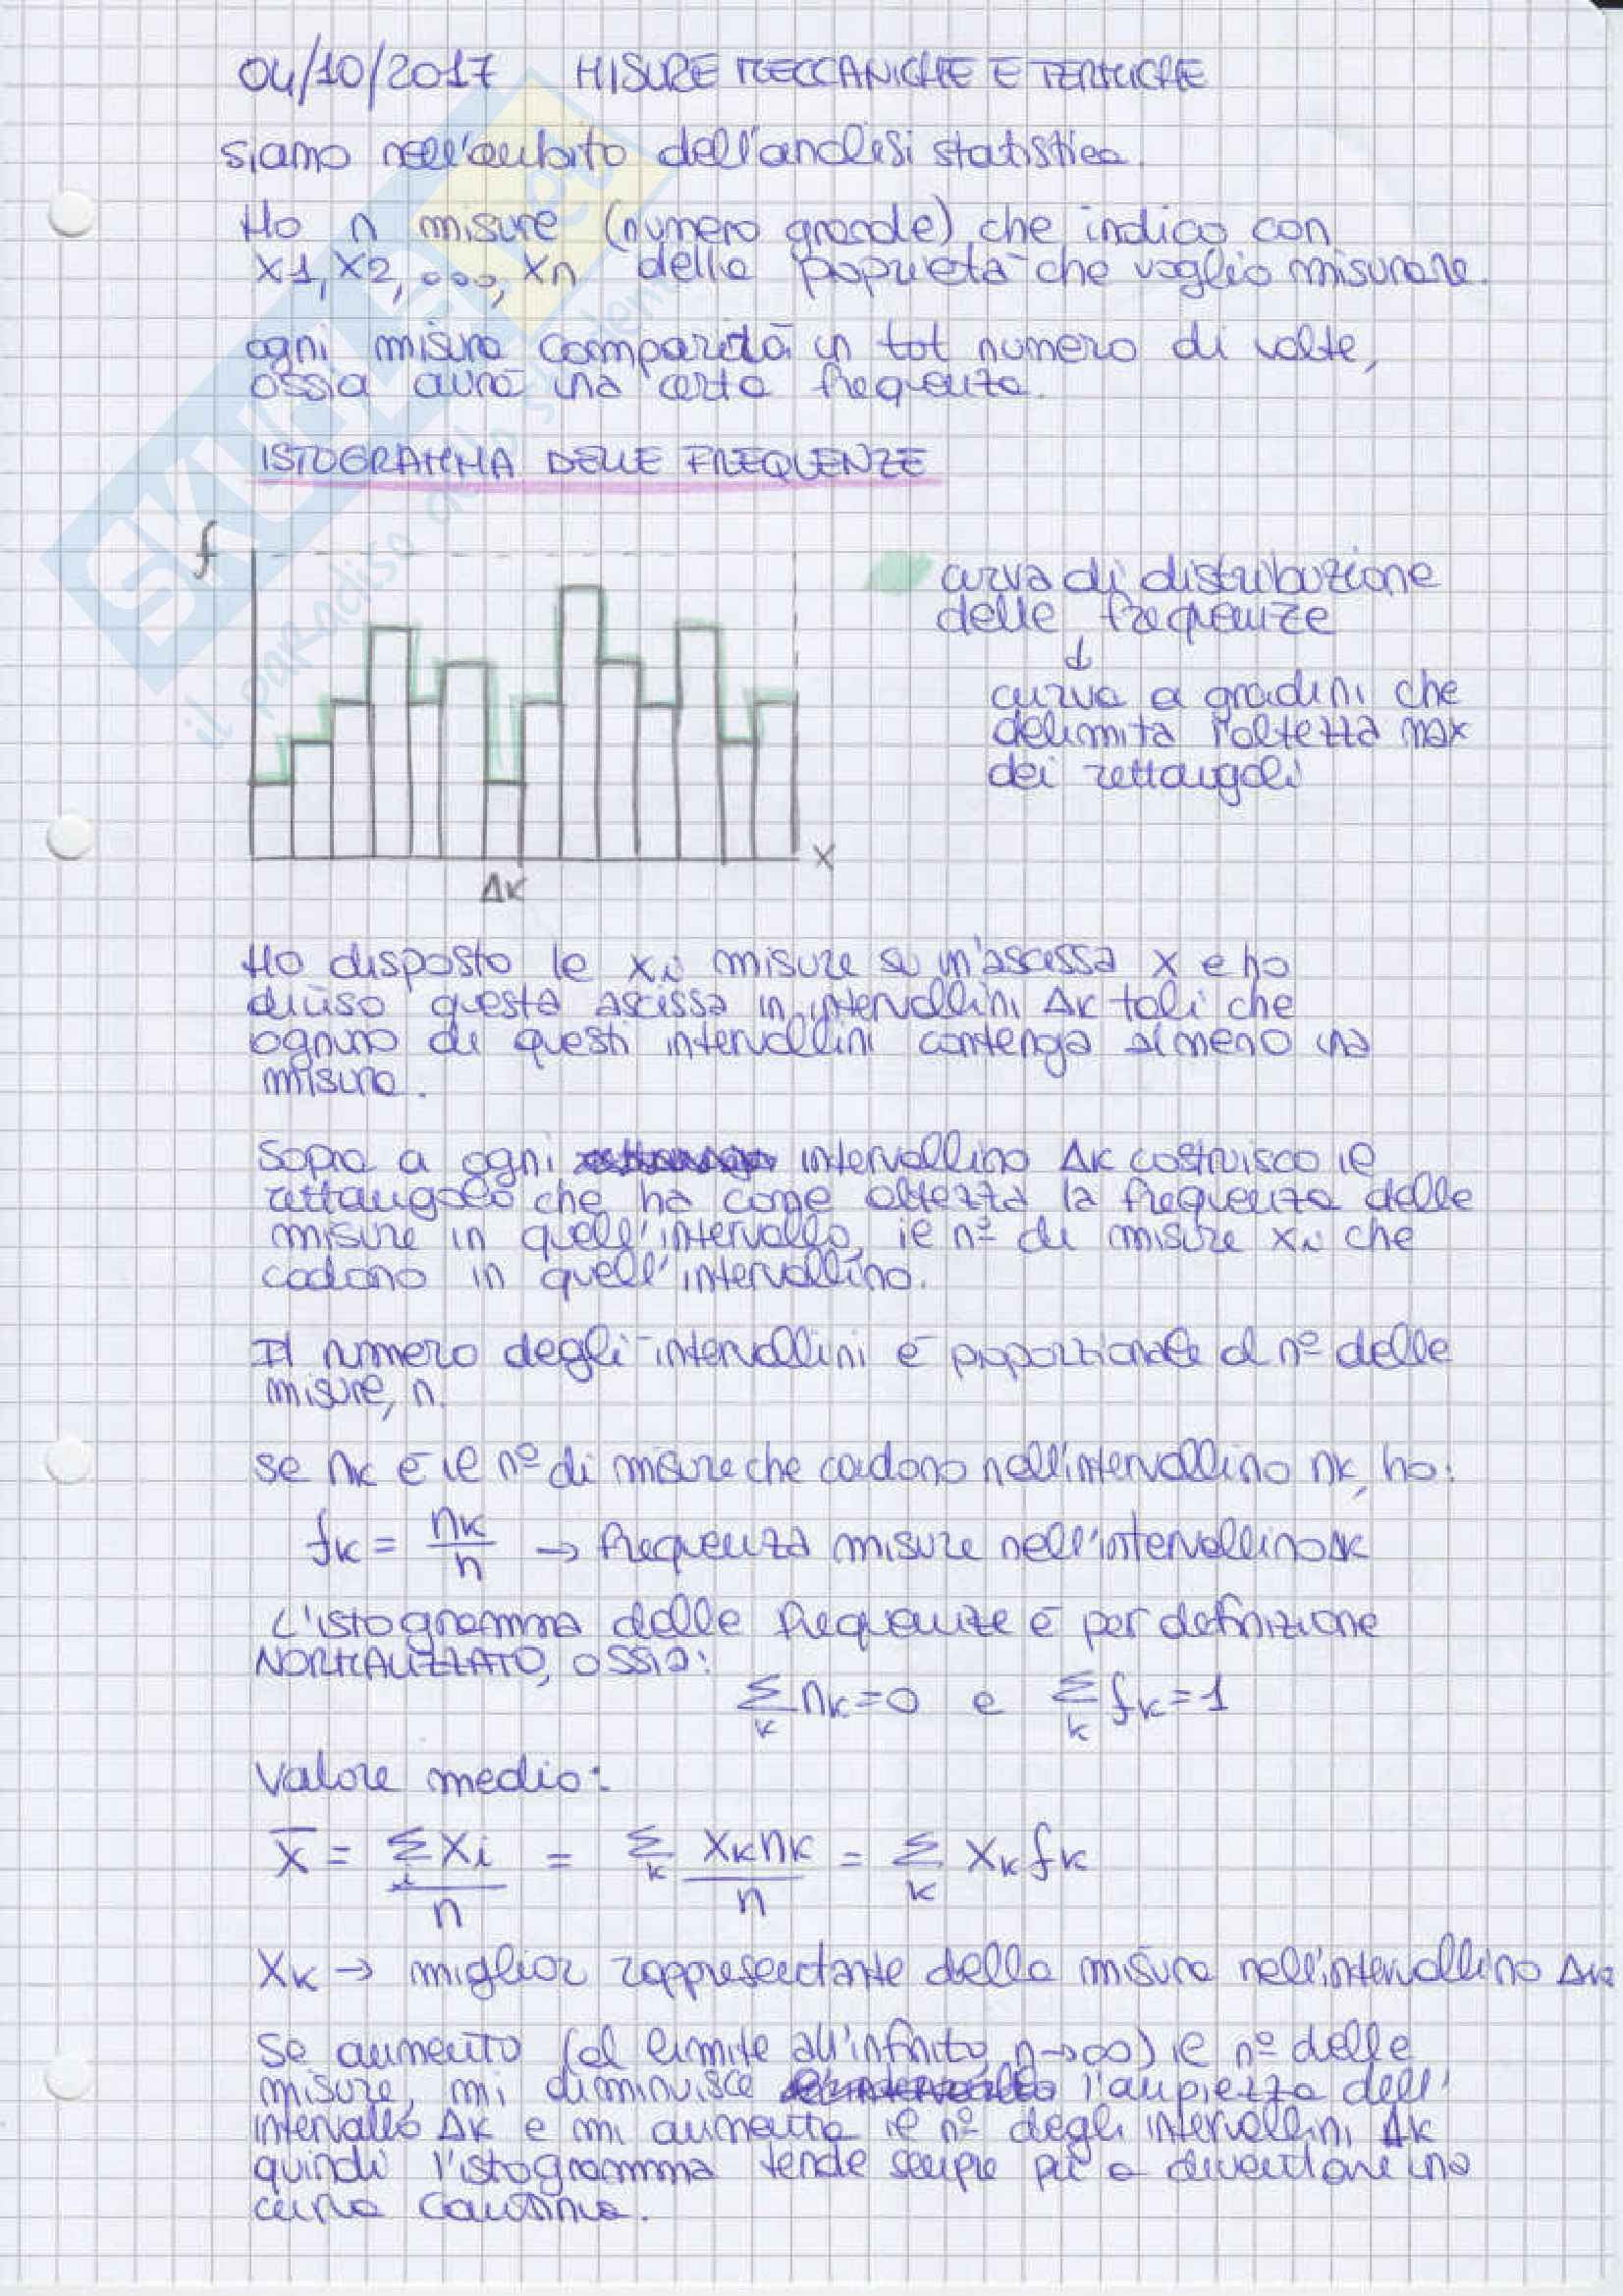 04/10/2017 MISURE MECCANICHE E TERMICHE
siamo nell'ambito dell'analisi statistica.
Ho n misure (numero grande) che indico con
x1, x2, ..., xn della proprietà che voglio misurare.
ogni misura comparirà un tot numero di volte,
ossia avrà una certa frequenza.
ISTOGRAMMA DELLE FREQUENZE
f
curva di distribuzione
delle frequenze
↓
curva a gradini che
delimita l'altezza max
dei rettangoli
x
Δk
Ho disposto le xi misure su un'ascissa x e ho
diviso questa ascissa in intervallini Δk tali che
ognuno di questi intervallini contenga almeno una
misura.
Sopra a ogni intervallino Δk costruisco il
rettangolo che ha come altezza la frequenza delle
misure in quell'intervallo, il nº di misure xi che
cadono in quell'intervallino.
Il numero degli intervallini è proporzionale al nº delle
misure, n.
se nk è il nº di misure che cadono nell'intervallino nk, ho:
fk = nk/n → frequenza misure nell'intervallino Δk
L'istogramma delle frequenze è per definizione
NORMALIZZATO, ossia:
Σk nk = 0 e Σk fk = 1
Valore medio:
x̄ = Σi xi / n = Σk xk nk / n = Σk xk fk
xk → miglior rappresentante della misura nell'intervallino Δk
Se aumento (al limite all'infinito, n→∞) il nº delle
misure, mi diminuisce l'ampiezza dell'
intervallo Δk e mi aumenta il nº degli intervallini Δk
quindi l'istogramma tende sempre più a diventare una
curva continua.
SKUOLA.net
il paradiso dello studente